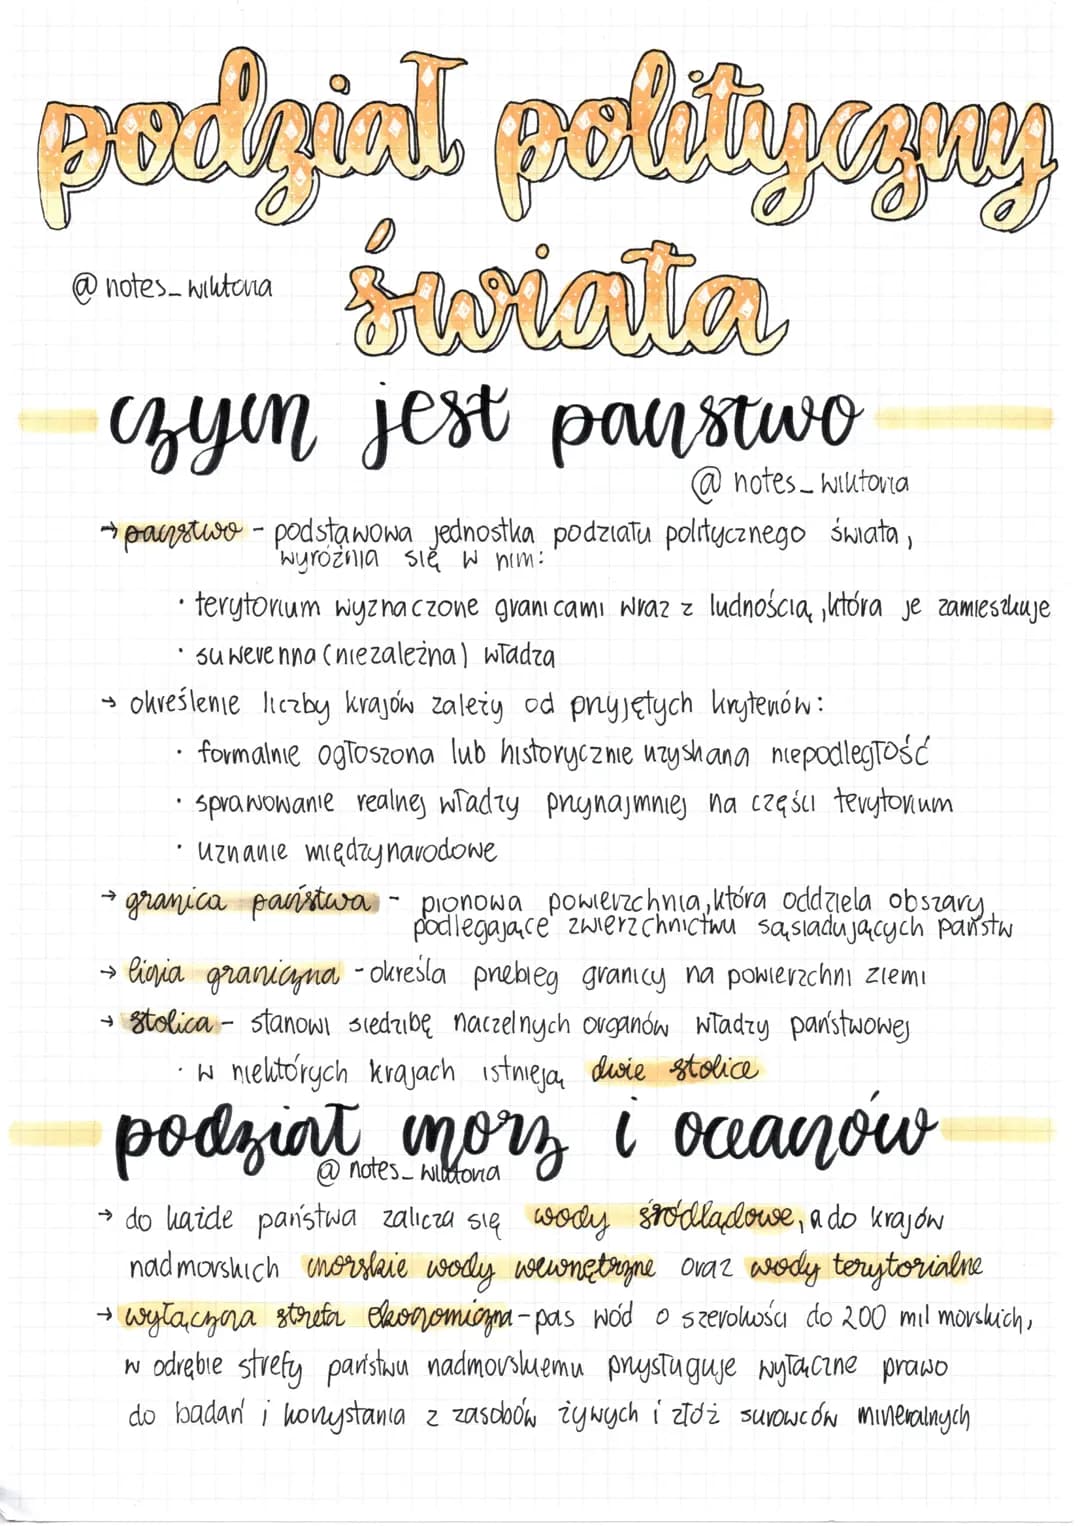 podział polityczny
@notes_wiktoria
świata
czym jest państwo
@notes_wiktoria
→ państwo - podstawowa jednostka podziału politycznego świata,
wyróżnia się w nim:
· terytorium wyznaczone granicami wraz z ludnością, która je zamieszkuje
· suwerenna (niezależna) władza
→ określenie liczby krajów zależy od przyjętych kryteriów:
· formalnie ogłoszona lub historycznie uzyskana niepodległość
· sprawowanie realnej władzy przynajmniej na części terytorium
· uznanie międzynarodowe
→ granica państwa - pionowa powierzchnia, która oddziela obszary
podlegające zwierzchnictwu sąsiadujących państw
→ linia graniczna - określa przebieg granicy na powierzchni ziemi
→ stolica - stanowi siedzibę naczelnych organów władzy państwowej
· w niektórych krajach istnieją dwie stolice
podział mórz i oceanów
@notes_wiktoria
→ do każde państwa zalicza się wody śródlądowe, a do krajów
nadmorskich morskie wody wewnętrzne oraz wody terytorialne
→ wyłączna strefa ekonomiczna - pas wód o szerokości do 200 mil morskich,
w odrębie strefy państwu nadmorskiemu przysługuje wyłączne prawo
do badań i korzystania z zasobów żywych i złóż surowców mineralnych